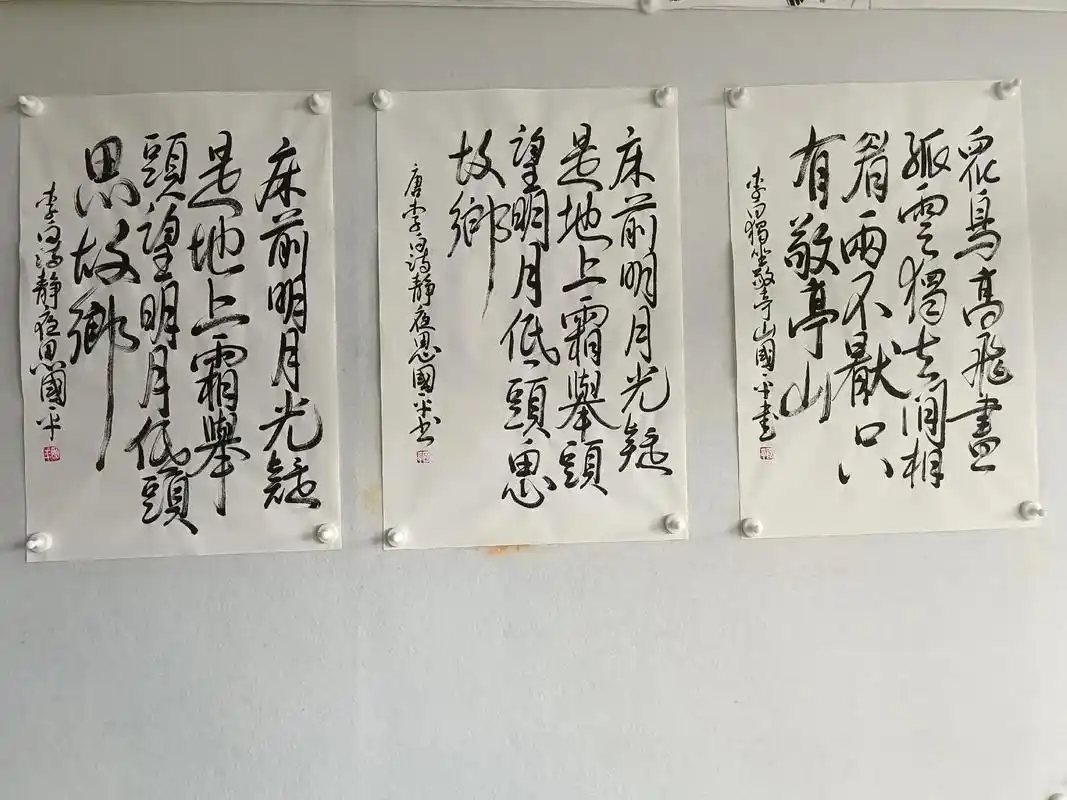 眾鳥高飛盡
孤雲獨去閒相
看兩不厭只
有敬亭山
李白獨坐敬亭山國平書
床前明月光疑
是地上霜舉頭
望明月低頭思
故鄉
唐李白詩靜夜思國平書
床前明月光疑
是地上霜舉
頭望明月低頭
思故鄉
李白詩靜夜思國平